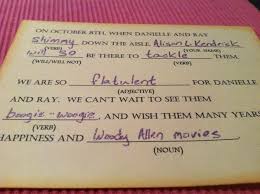 ON OCTOBER 8TH, WHEN DANIELLE AND RAY
shimmy DOWN THE AISLE, Alison L. Kendrick
(VERB) (YOUR NAME)
will so BE THERE TO tackle THEM.
(WILL/WILL NOT) (VERB)
WE ARE SO flatulent FOR DANIELLE
(ADJECTIVE)
AND RAY. WE CAN'T WAIT TO SEE THEM
boogie-woogie, AND WISH THEM MANY YEARS
(VERB)
HAPPINESS AND Woody Allen movies
(NOUN)